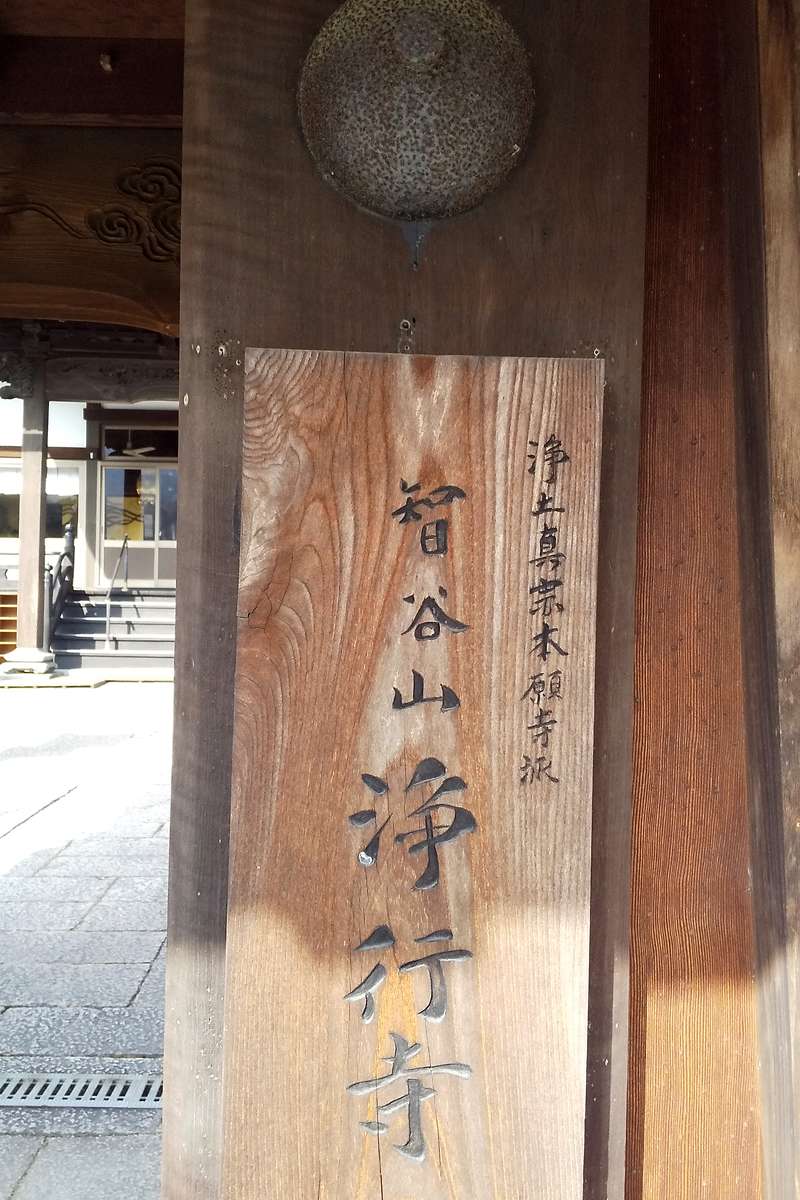 浄土真宗本願寺派
智谷山浄行寺